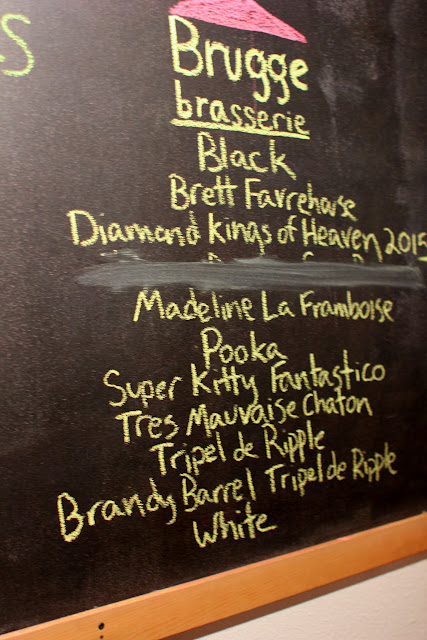 S
Brugge
brasserie
Black
Brett Favrehouse
Diamond Kings of Heaven 2015
Madeline La Framboise
Pooka
Super Kitty Fantastico
Tres Mauvaise Chaton
Tripel de Ripple
Brandy Barrel Tripel de Ripple
White